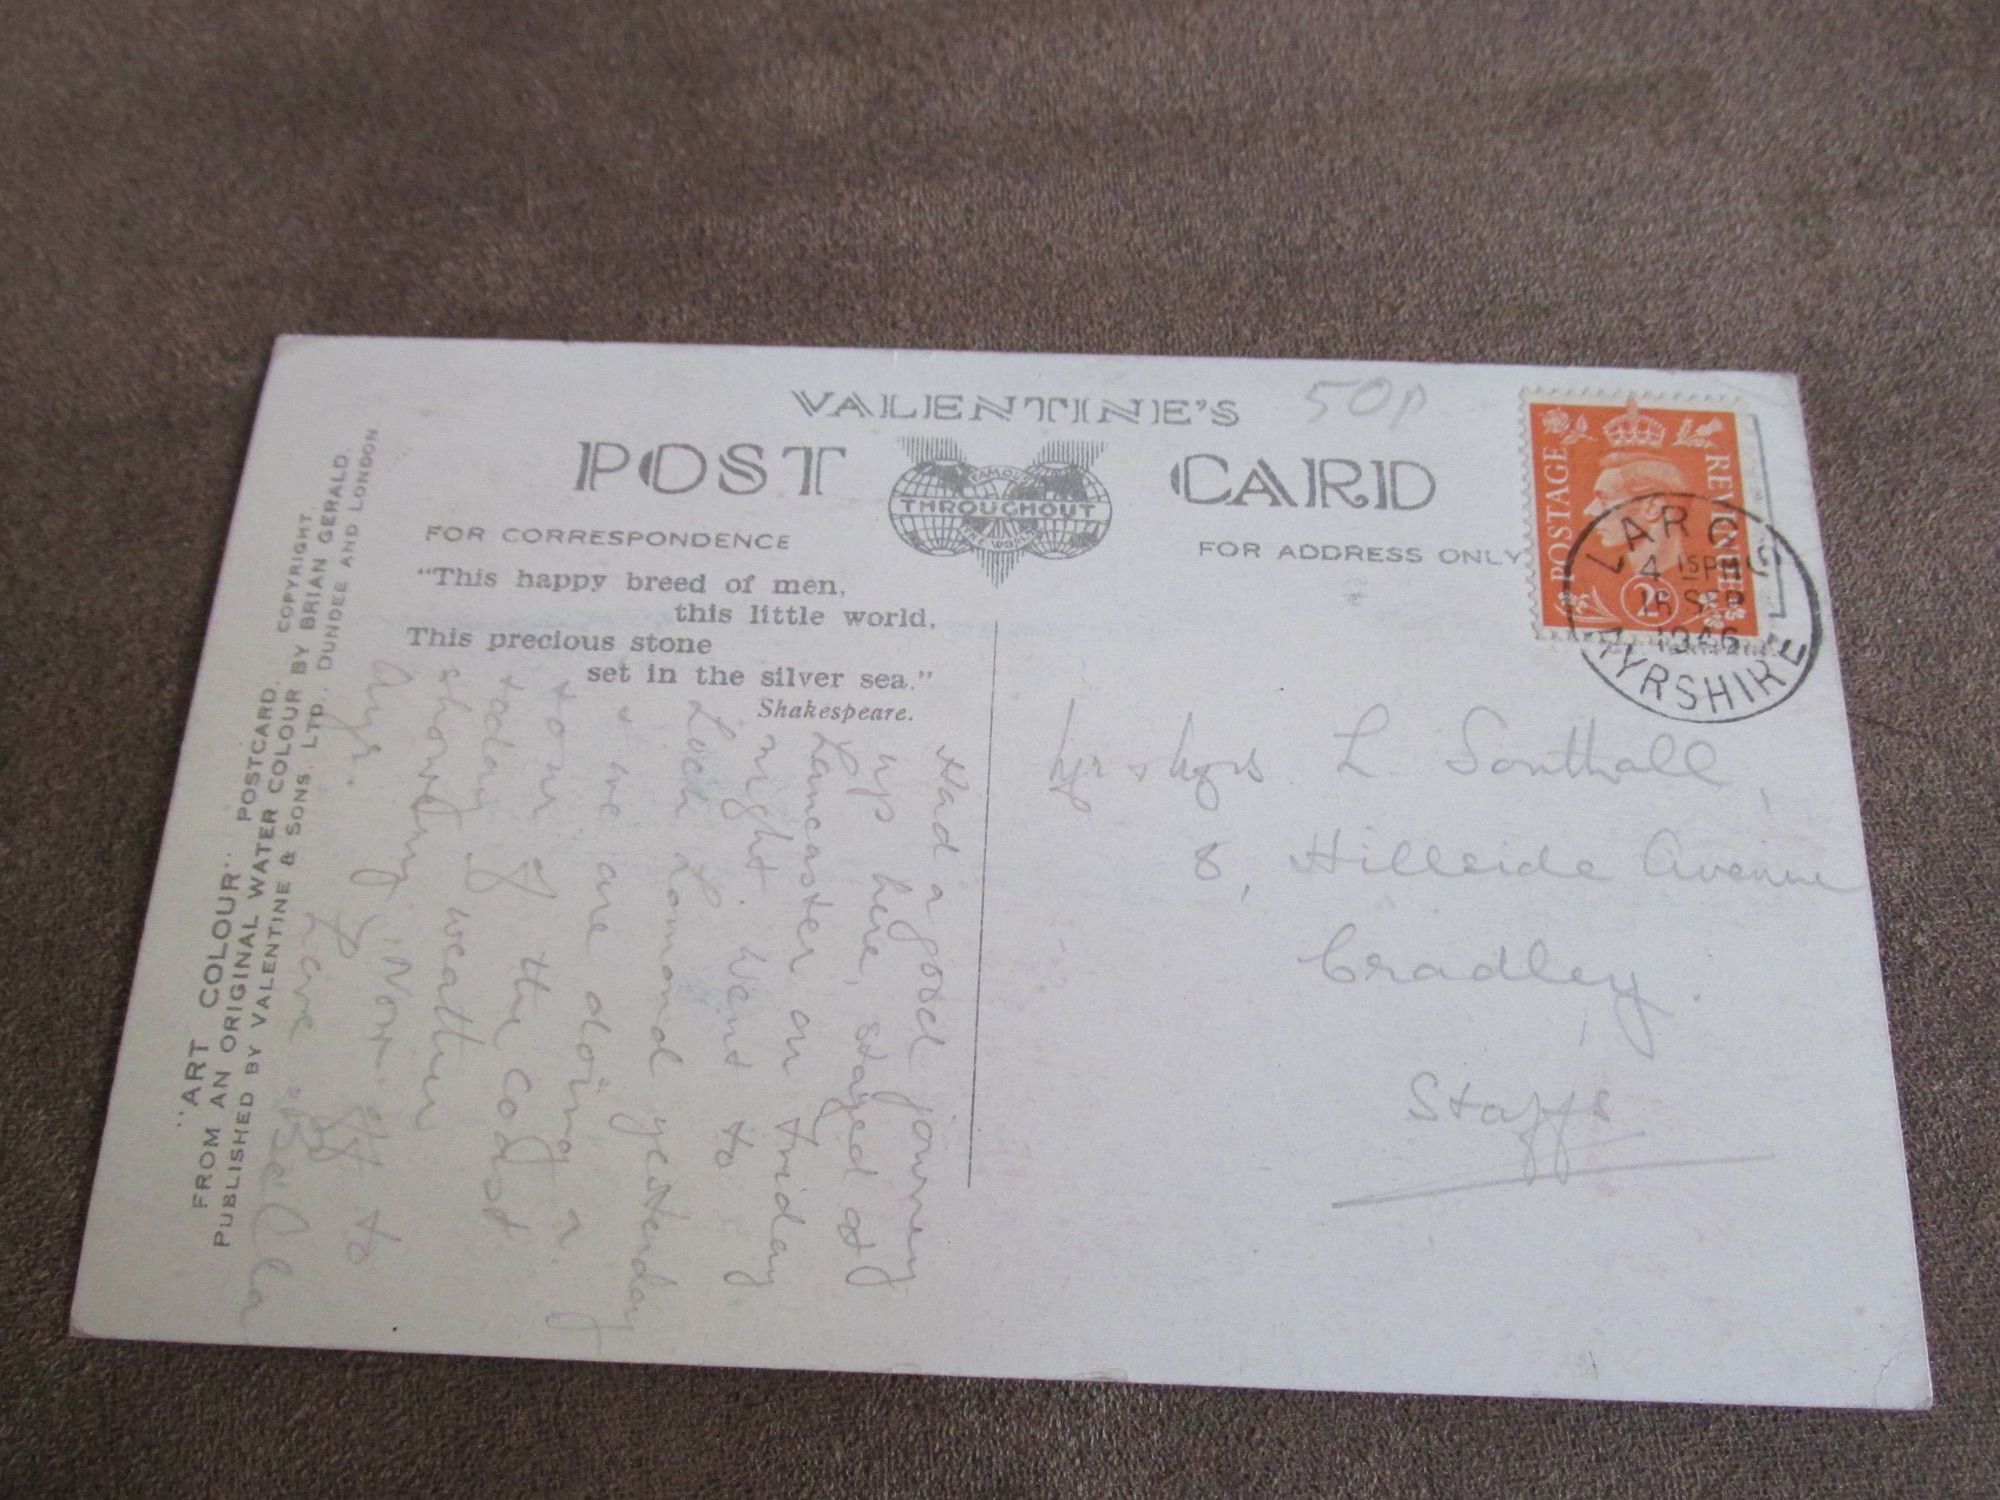 VALENTINE'S
50p
POST CARD
FAMOUS
THROUGHOUT
THE WORLD
FOR CORRESPONDENCE
FOR ADDRESS ONLY
"This happy breed of men,
this little world,
This precious stone
set in the silver sea."
Shakespeare.
POSTAGE REVENUE
2D
LARGS
4 15 PM
16 SEP
1946
AYRSHIRE
Mr & Mrs. L. Southall,
8, Hillside Avenue
Cradley.
Staffs
Had a good journey
up here, stayed at
Lancaster on Friday
night. Went to
Loch Lomond yesterday
& we are doing a
tour of the coast
today. weather
showery. Now off to
Ayr.
Love
"ART COLOUR" POSTCARD.
FROM AN ORIGINAL WATER COLOUR BY BRIAN GERALD.
PUBLISHED BY VALENTINE & SONS. LTD., DUNDEE AND LONDON
COPYRIGHT.